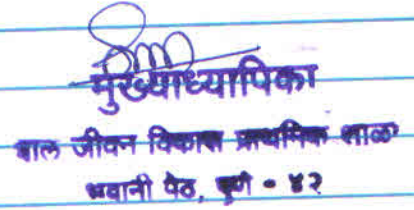 मुख्याध्यापिका
बाल जीवन विकास प्राथमिक शाळा
भवानी पेठ, पुणे - ४२